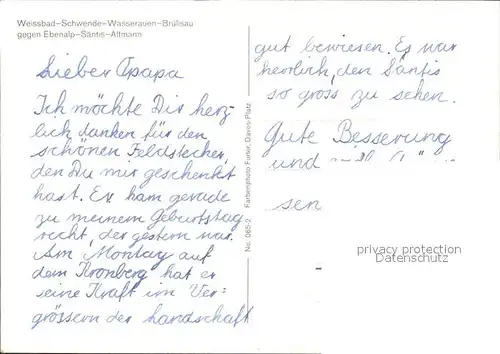 Weissbad–Schwende–Wasserauen–Brüllsau
gegen Ebenalp–Säntis–Altmann
Lieber Opapa
Ich möchte Dir herz-
lich danken für den
schönen Feldstecher,
den Du mir geschenkt
hast. Er kam gerade
zu meinem Geburtstag
recht, der gestern war.
Am Montag auf
dem Kronberg hat er
seine Kraft im Ver=
grössern der Landschaft
No. 065-2 Farbenphoto Furter, Davos-Platz
gut bewiesen. Es war
herrlich, den Säntis
so gross zu sehen.
Gute Besserung
und
sen
privacy protection
DatenSchutz